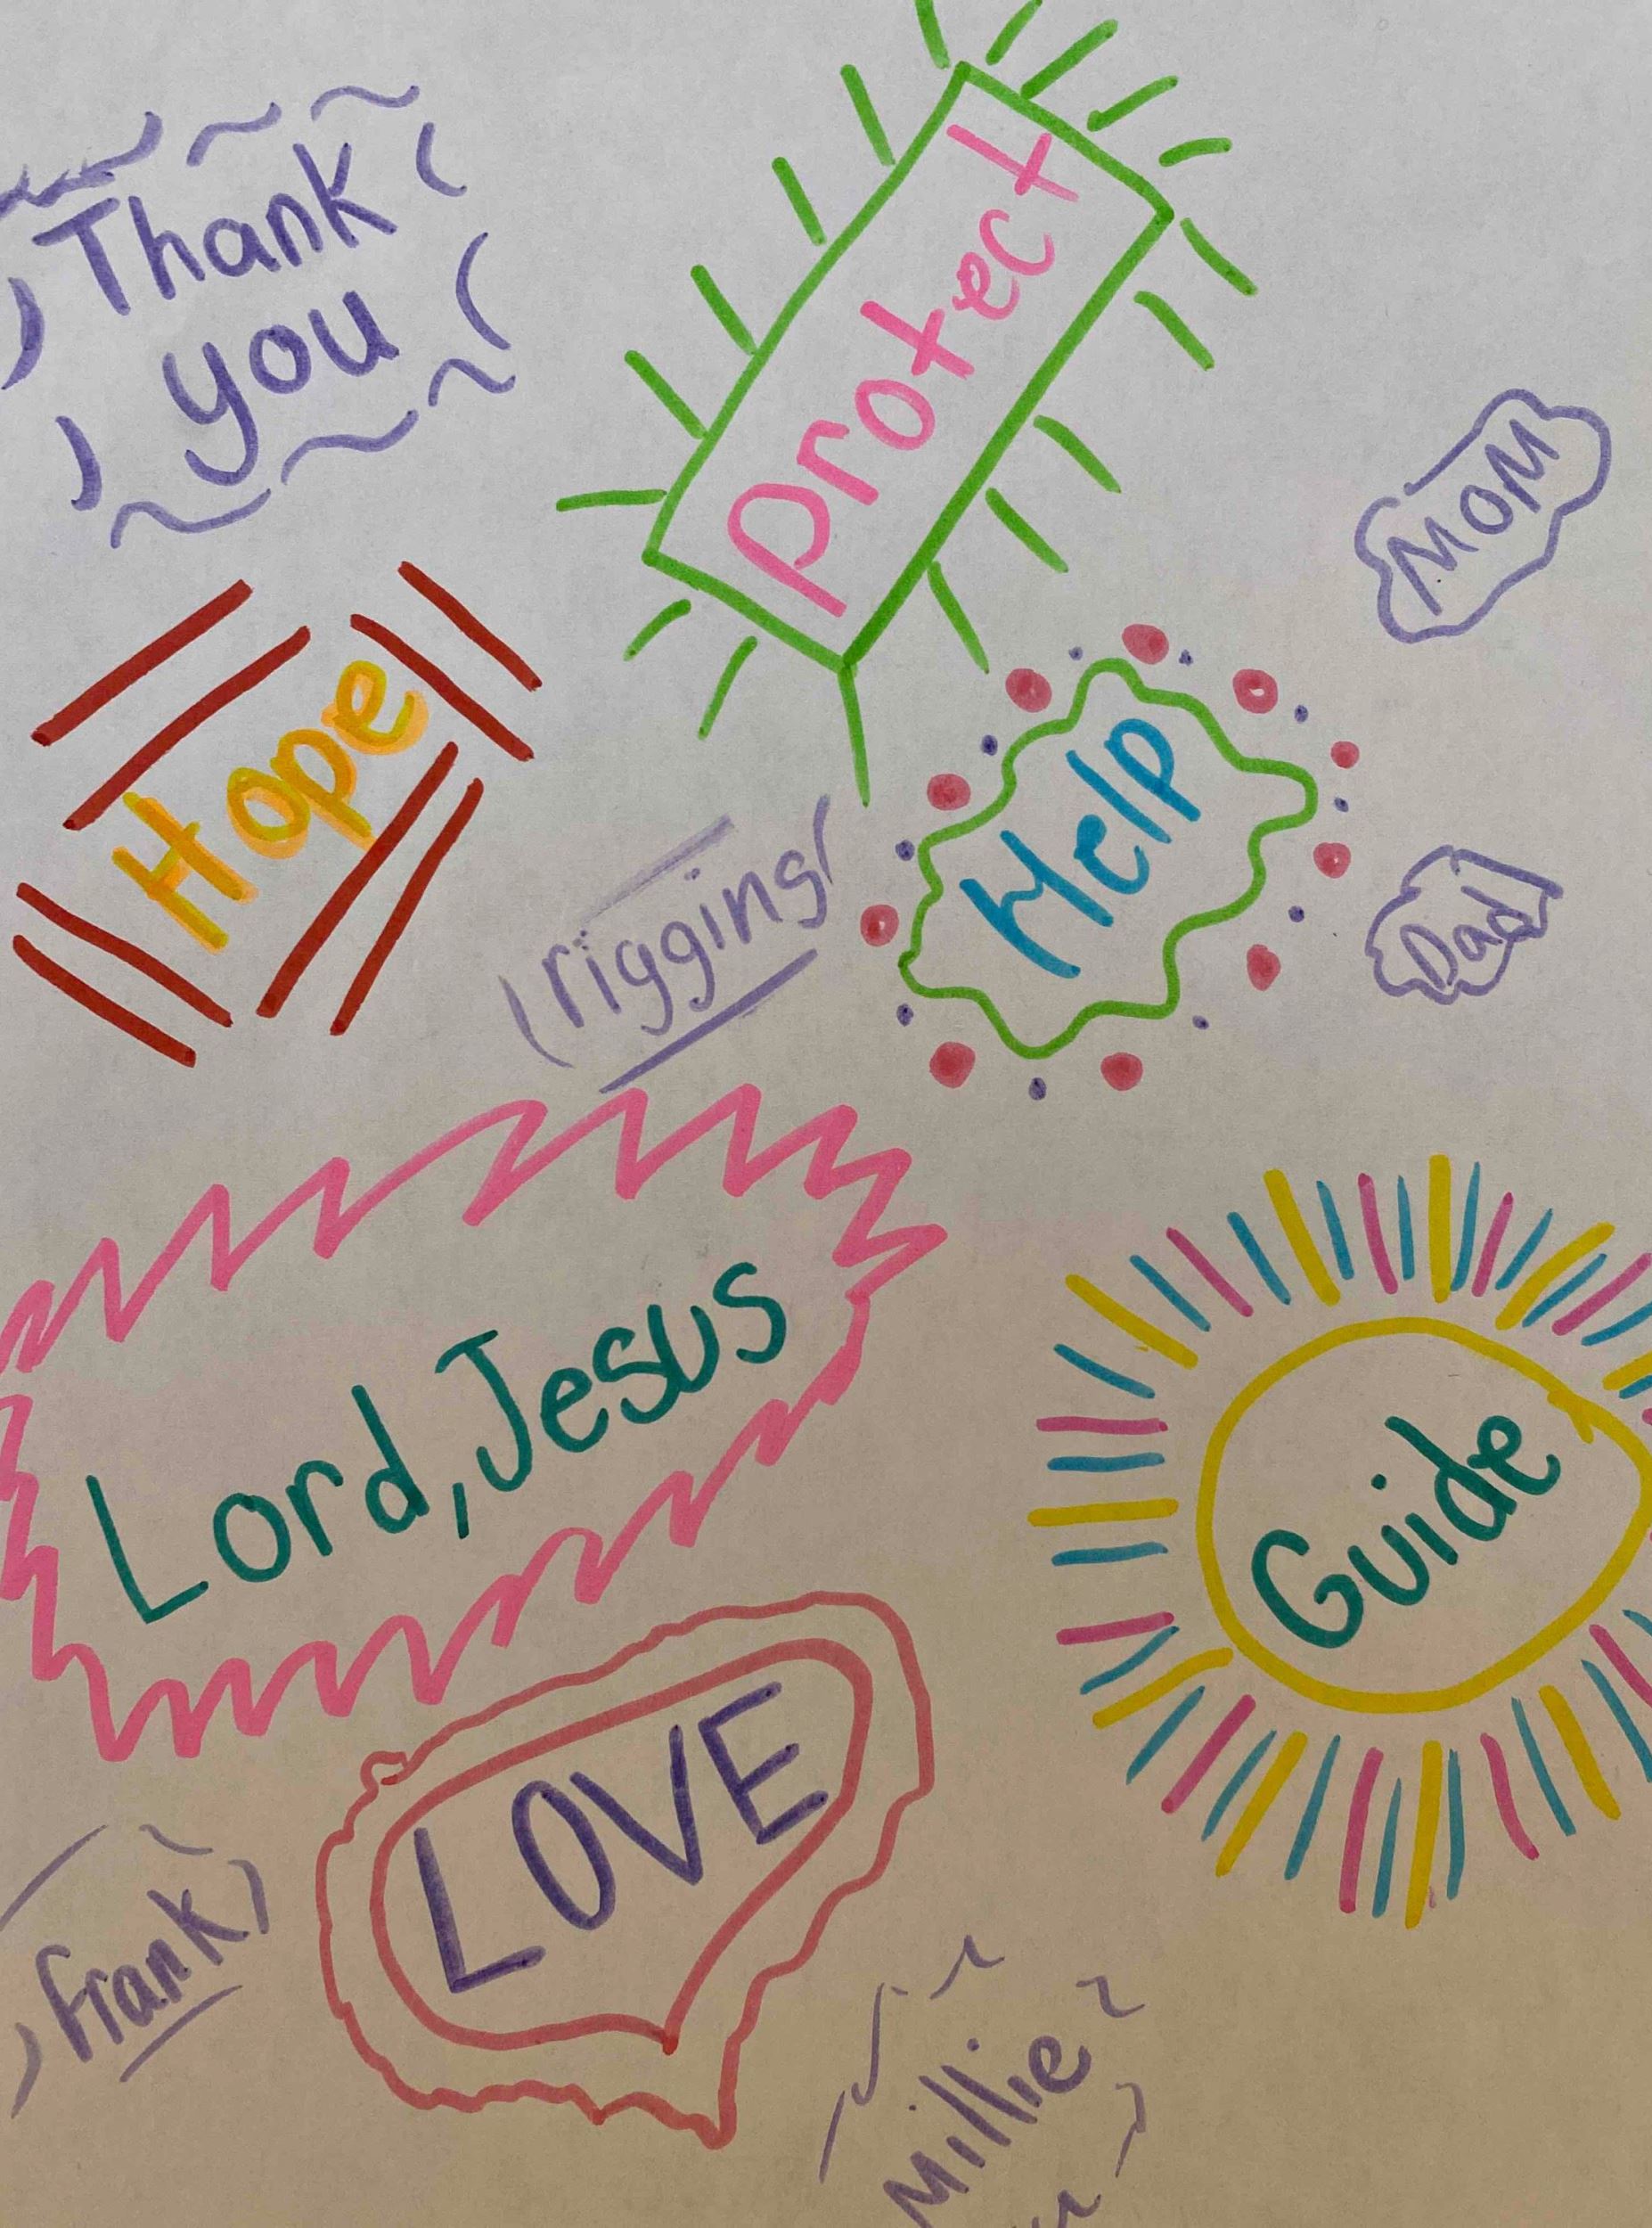 Thank
you
protect
MOM
Hope
riggins
Help
Dad
Lord, Jesus
Guide
LOVE
frank
Millie